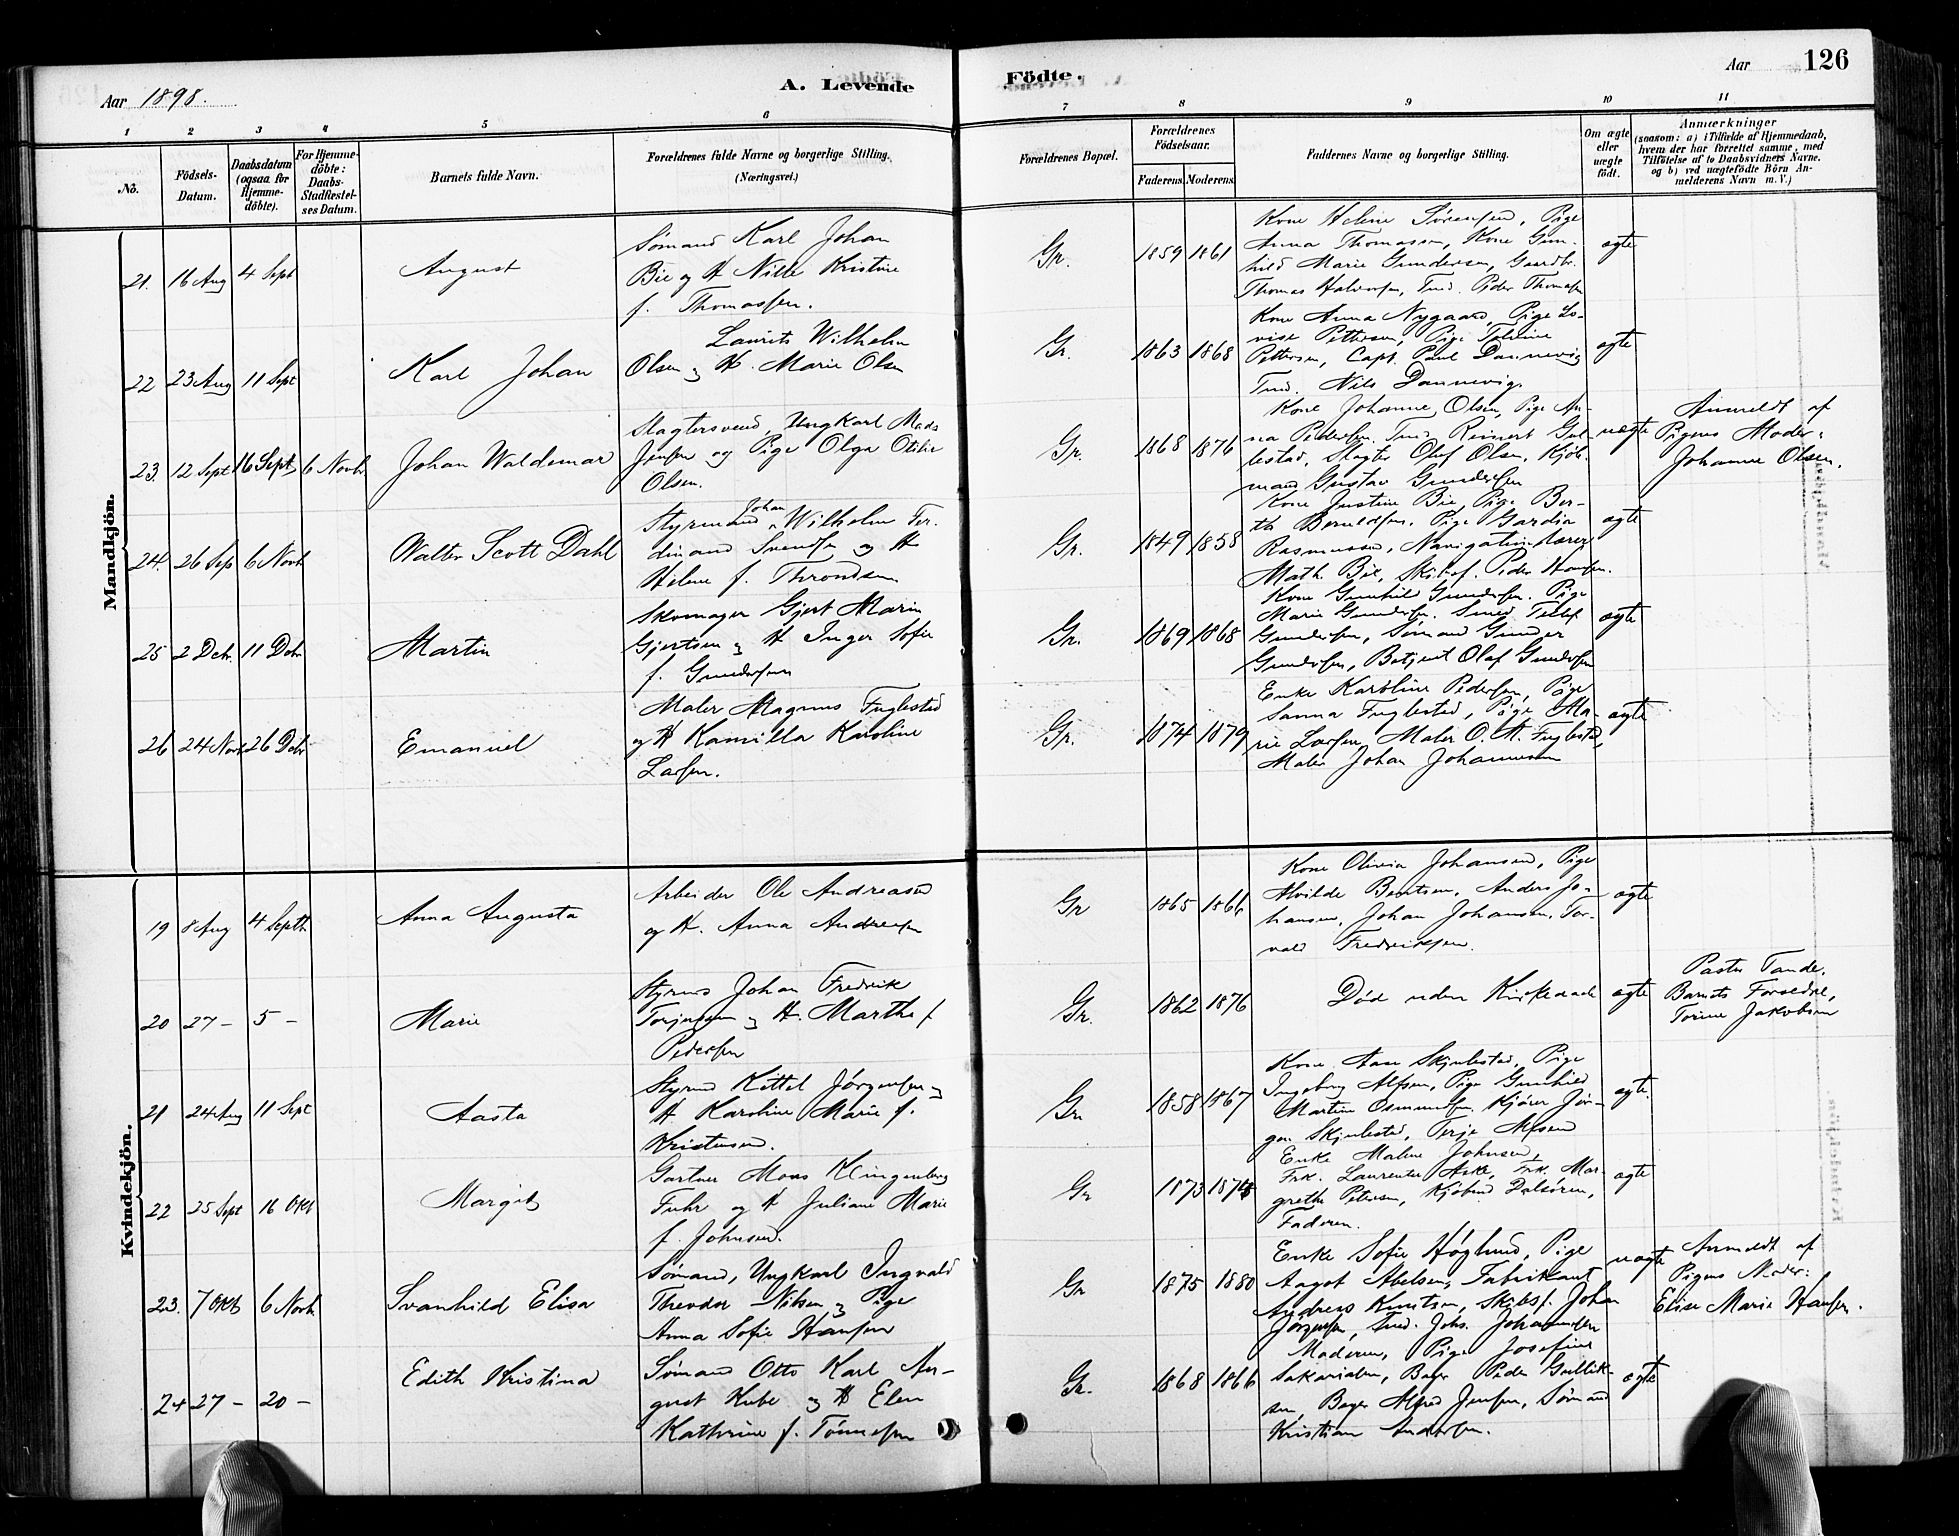 Aar 1898.
A. Levende
Födte.
Aar 126
1 2 3 4 5 6 7 8 9 10 11
No.
Födsels-Datum.
Daabsdatum (ogsaa for Hjemmedöbte).
For Hjemmedöbte: Daabs-Stadfæstelses Datum.
Barnets fulde Navn.
Forældrenes fulde Navne og borgerlige Stilling.
(Næringsvei.)
Forældrenes Bopæl.
Forældrenes Födselsaar.
Faderens. Moderens.
Faddernes Navne og borgerlige Stilling.
Om ægte eller uægte födt.
Anmærkninger
(saasom: a) i Tilfælde af Hjemmedaab, hvem der har forrettet samme, med Tilföielse af to Daabsvidners Navne. og b) ved uægtefödte Börn Anmelderens Navn m. V.)
Mandkjön.
21. 16 Aug 4 Sept
August
Sømand Karl Johan
Bie og H Nille Kristine
f. Thomassen.
Gr. 1859 1861
Kone Helene Sørensen, Pige
Anna Thomassen, Kone Gun-
hild Marie Gundersen, Gaardb.
Thomas Halvorsen, Tmd. Peder Thomassen
ægte
22 23 Aug 11 Sept
Karl Johan
Laurits Wilhelm
Olsen og H. Marie Olsen
Gr. 1863 1868
Kone Anna Nygaard, Pige Lo-
vise Pettersen, Pige
Pettersen, Capt. Paul Dannevig
Tmd. Nils Dannevig.
ægte
23. 12 Sept 16 Sept 6 Novb
Johan Waldemar
Slagtersvend, Ungkarl Mads
Jensen og Pige Olga Otilie
Olsen.
Gr. 1868 1876
Kone Johanne Olsen, Pige An-
na Pedersen. Tmd Reinert Gul-
lestad, Slagter Oluf Olsen, Kjøb-
mand Gustav Gundersen
uægte
Anmeldt af
Pigens Moder:
Johanne Olsen.
24. 26 Sep 6 Novb
Walter Scott Dahl
Styrmand Johan Wilhelm Fer-
dinand Svendsen og H
Helene f. Throndsen
Gr. 1849 1858
Kone Justine Bie, Pige Ber-
the Berntsen, Pige Gardia
Rasmussen, Navigationslærer
Math. Bie, Skibsf. Peder Hansen.
ægte
25 2 Dcbr. 11 Dcbr
Martin
Skomager Gjert Marin
Gjertsen og H Inger Sofie
f. Gundersen
Gr. 1869 1868
Kone Gunhild Gundersen. Pige
Marie Gundersen. Smed Tellef
Gundersen, Sømand Gunder
Gundersen, Betjent Olaf Gundersen
ægte
26 24 Novb 26 Dcbr
Emanuel
Maler Magnus Fuglestad
og H Kamilla Karoline
Larsen.
Gr. 1874 1879
Enke Karoline Pedersen, Pige
Sanna Fuglestad, Pige Ma-
rie Larsen, Maler O. M. Fuglestad,
Maler Johan Johannesen
ægte
Kvindekjön.
19 8 Aug 4 Septb
Anna Augusta
Arbeider Ole Andreasen
og H. Anna Andreasen
Gr 1865 1866
Kone Olivia Johansen, Pige
Alvilde Bentsen, Anders Jo-
hansen, Johan Johansen, Tor-
vald Fredriksen.
ægte
20 27 – 5 –
Marie
Styrmd Johan Fredrik
Terjesen og H. Marthe f
Pedersen
Gr. 1862 1876
Død uden Kirkedaab
ægte
Pastor Tande.
Barnets Forældre,
Torine Jakobsen
21 24 Aug 11 Sept
Aasta
Styrmd Kittel Jørgensen og
H Karoline Marie f.
Kristensen.
Gr 1858 1867
Kone Aase Skjulestad, Pige
Ingeborg Alfsen, Pige Gunhild
Martine Osmundsen. Kjører Jør-
gen Skjulestad, Terje Alfsen
ægte.
22 25 Sept 16 Okt
Margit
Gartner Mons Klingenberg
Fuhr og H Juliane Marie
f. Johnsen.
Gr 1873 1875
Enke Malene Johnsen,
Frk. Laurentze Aske, Frk. Mar-
grethe Petersen, Kjøbmd Dalsøren,
Faderen.
ægte
23. 7 Okt 6 Novb
Svanhild Elisa
Sømand, Ungkarl Ingvald
Theodor Nilsen og Pige
Anna Sofie Hansen
Gr 1875 1880
Enke Sofie Høglund, Pige
Aagot Abelsen, Fabrikant
Anders Knutsen, Skibsf. Johan
Jørgensen, Tmd. Johs. Johannesen
uægte
Anmeldt af
Pigens Moder:
Elise Marie Hansen.
24 27 – 20 –
Edith Kristina
Sømand Otto Karl Au-
gust Kube og H Elen
Kathrine f. Tønnesen
Gr. 1868 1866
Moderen, Pige Josefine
Sakariasen, Bager Peder Gullik-
sen, Bager Alfred Jensen, Sømand
Kristian Andersen.
ægte